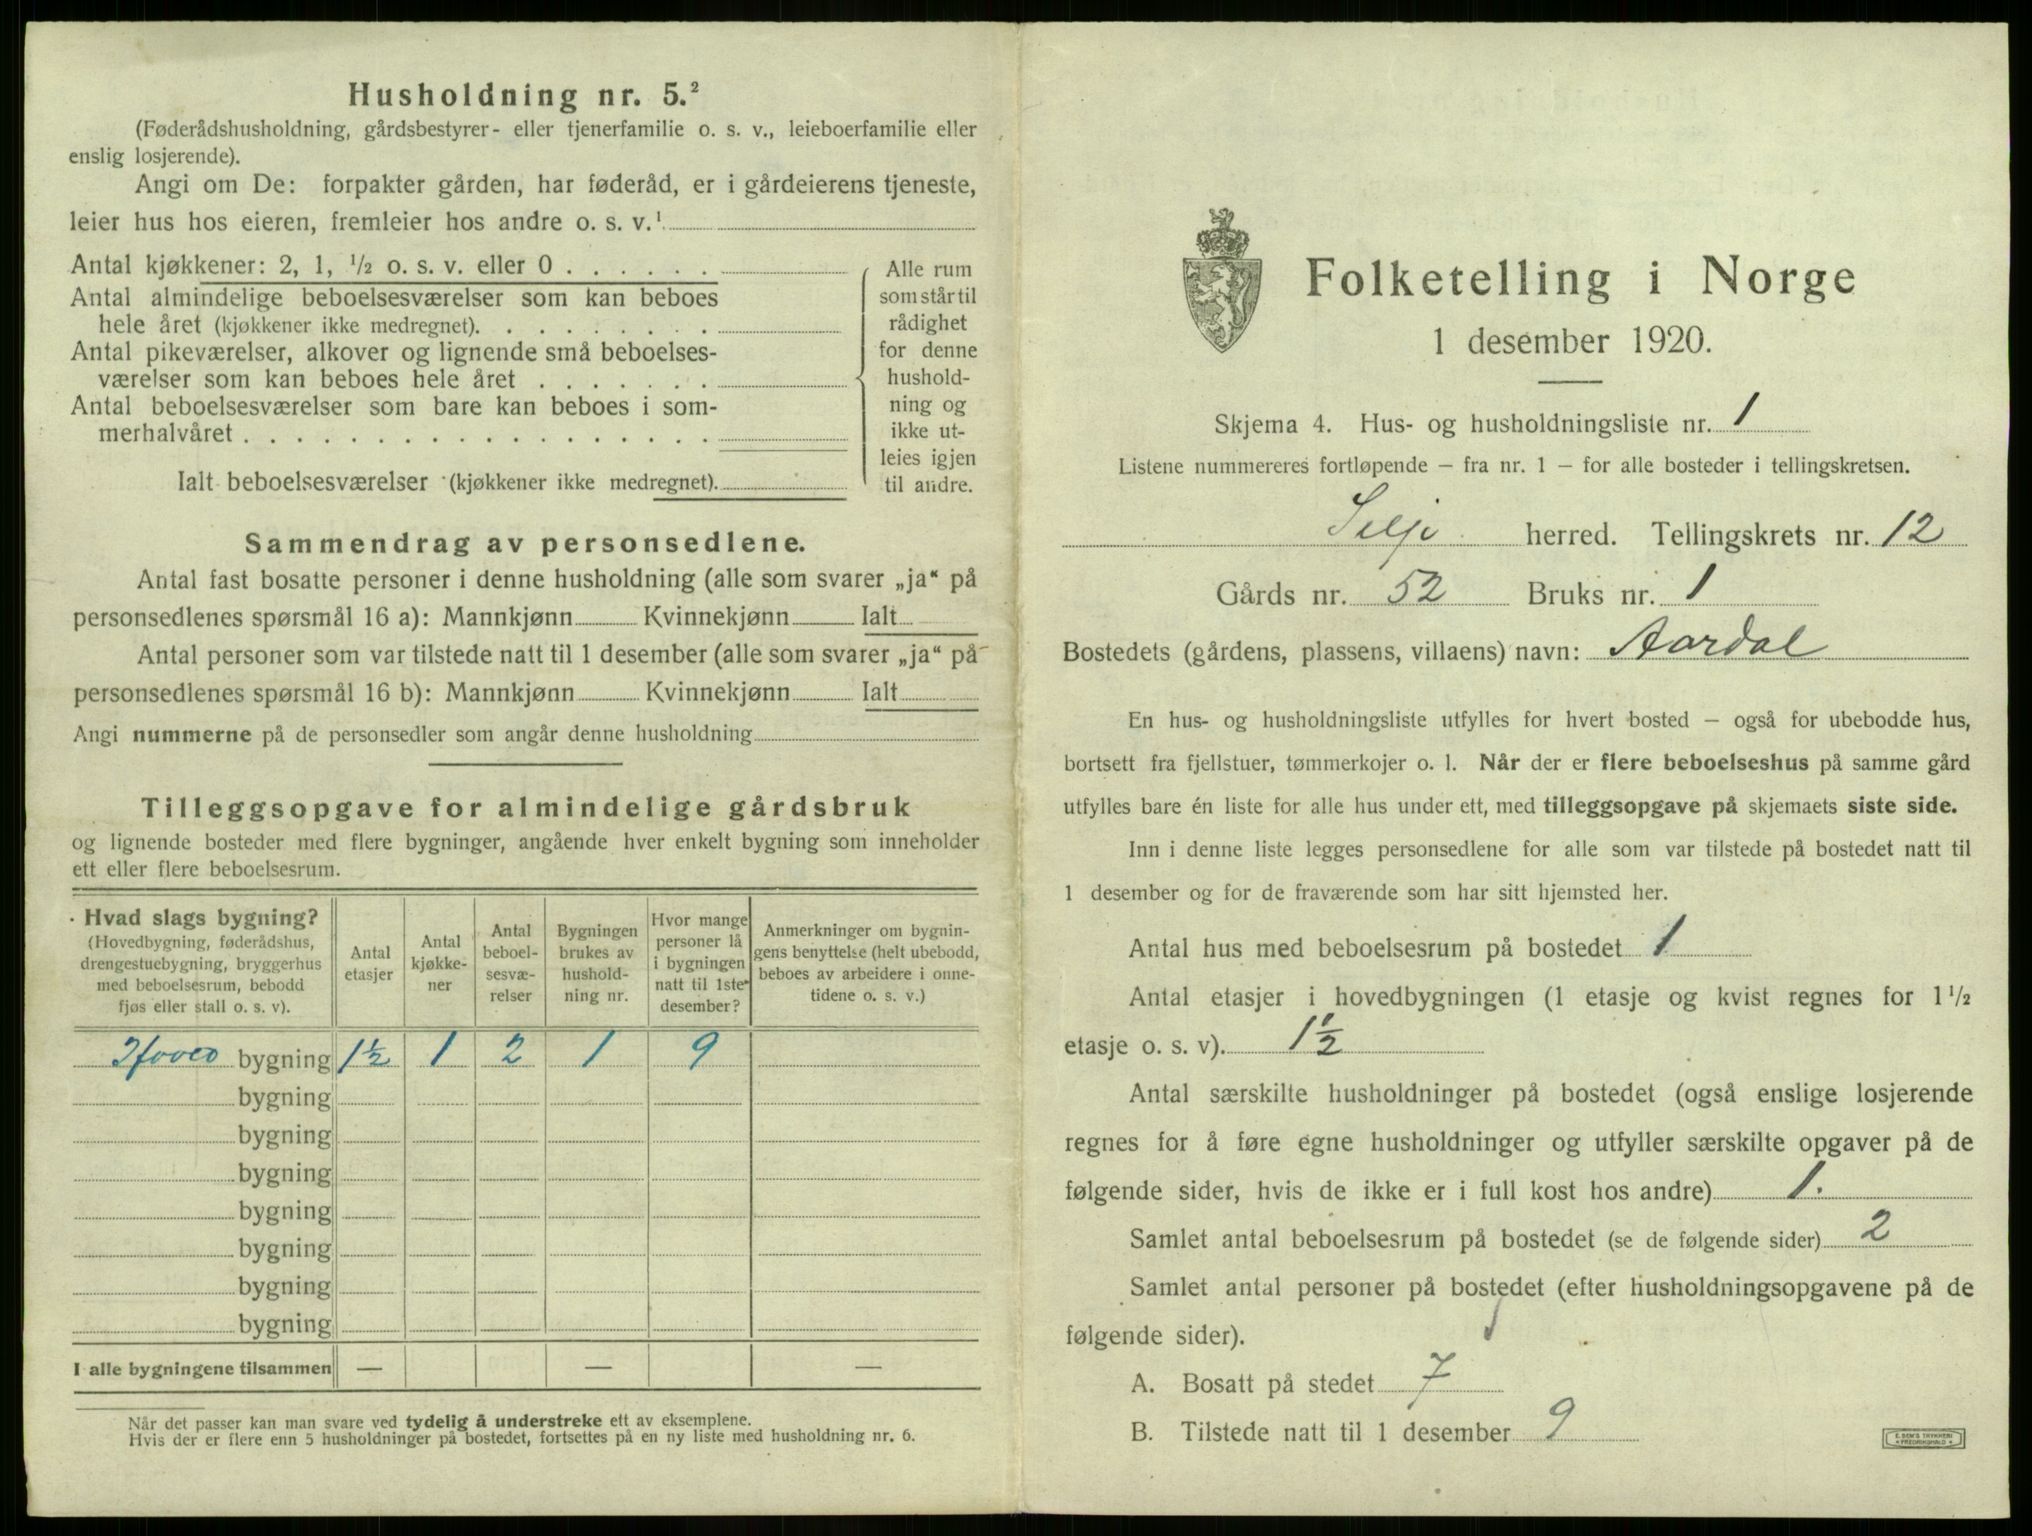 Husholdning nr. 5.²
(Føderådshusholdning, gårdsbestyrer- eller tjenerfamilie o. s. v., leieboerfamilie eller
enslig losjerende).
Angi om De: forpakter gården, har føderåd, er i gårdeierens tjeneste,
leier hus hos eieren, fremleier hos andre o. s. v.¹
Antal kjøkkener: 2, 1, ½ o. s. v. eller 0 . . . . . .
Antal almindelige beboelsesværelser som kan beboes
hele året (kjøkkener ikke medregnet). . . . . . . . .
Antal pikeværelser, alkover og lignende små beboelses-
værelser som kan beboes hele året . . . . . . .
Antal beboelsesværelser som bare kan beboes i som-
merhalvåret . . . . . . . . . . . . . . . . . .
Ialt beboelsesværelser (kjøkkener ikke medregnet).
Alle rum
som står til
rådighet
for denne
hushold-
ning og
ikke ut-
leies igjen
til andre.
Sammendrag av personsedlene.
Antal fast bosatte personer i denne husholdning (alle som svarer „ja“ på
personsedlenes spørsmål 16 a): Mannkjønn Kvinnekjønn Ialt
Antal personer som var tilstede natt til 1 desember (alle som svarer „ja“ på
personsedlenes spørsmål 16 b): Mannkjønn Kvinnekjønn Ialt
Angi nummerne på de personsedler som angår denne husholdning
Tilleggsopgave for almindelige gårdsbruk
og lignende bosteder med flere bygninger, angående hver enkelt bygning som inneholder
ett eller flere beboelsesrum.
Hvad slags bygning?
(Hovedbygning, føderådshus,
drengestuebygning, bryggerhus
med beboelsesrum, bebodd
fjøs eller stall o. s. v).
Antal
etasjer
Antal
kjøkke-
ner
Antal
beboel-
sesvæ-
relser
Bygningen
brukes av
hushold-
ning nr.
Hvor mange
personer lå
i bygningen
natt til 1ste
desember?
Anmerkninger om bygnin-
gens benyttelse (helt ubebodd,
beboes av arbeidere i onne-
tidene o. s. v.)
Hoved bygning 1½ 1 2 1 9
bygning
bygning
bygning
bygning
bygning
bygning
bygning
I alle bygningene tilsammen — — —
Når det passer kan man svare ved tydelig å understreke ett av eksemplene.
Hvis der er flere enn 5 husholdninger på bostedet, fortsettes på en ny liste med husholdning nr. 6.
Folketelling i Norge
1 desember 1920.
Skjema 4. Hus- og husholdningsliste nr. 1
Listene nummereres fortløpende — fra nr. 1 — for alle bosteder i tellingskretsen.
Selje herred. Tellingskrets nr. 12
Gårds nr. 52 Bruks nr. 1
Bostedets (gårdens, plassens, villaens) navn: Aardal
En hus- og husholdningsliste utfylles for hvert bosted — også for ubebodde hus,
bortsett fra fjellstuer, tømmerkojer o. l. Når der er flere beboelseshus på samme gård
utfylles bare én liste for alle hus under ett, med tilleggsopgave på skjemaets siste side.
Inn i denne liste legges personsedlene for alle som var tilstede på bostedet natt til
1 desember og for de fraværende som har sitt hjemsted her.
Antal hus med beboelsesrum på bostedet 1
Antal etasjer i hovedbygningen (1 etasje og kvist regnes for 1½
etasje o. s. v). 1½
Antal særskilte husholdninger på bostedet (også enslige losjerende
regnes for å føre egne husholdninger og utfyller særskilte opgaver på de
følgende sider, hvis de ikke er i full kost hos andre) 1.
Samlet antal beboelsesrum på bostedet (se de følgende sider) 2
Samlet antal personer på bostedet (efter husholdningsopgavene på de
følgende sider).
A. Bosatt på stedet 7
B. Tilstede natt til 1 desember 9
E. SEM'S TRYKKERI
FREDRIKSHALD